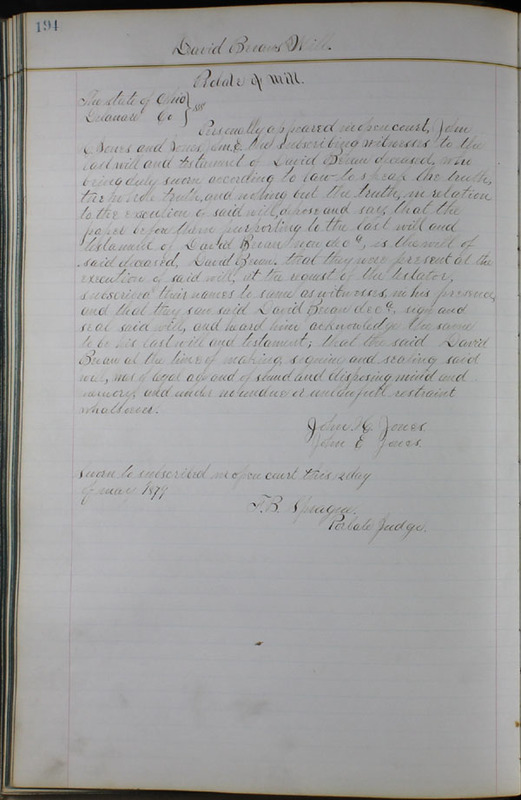 194
David Breans Will.
Probate of Will.
The state of Ohio }
Delaware Co } SS
Personally appeared in open court, John
Jones and Jones John E. the subscribing witnesses to the
last will and testament of David Brean deceased, who
being duly sworn according to law to speak the truth,
the whole truth, and nothing but the truth, in relation
to the execution of said will, depose and say, that the
paper before them purporting to the last will and
testament of David Brean now decd, is the will of
said deceased, David Brean. that they were present at the
execution of said will, at the request of the testator,
subscribed their names to same as witnesses, in his presence,
and that they saw said David Brean decd, sign and
seal said will, and heard him acknowledge the same
to be his last will and testament; that the said David
Brean at the time of making, signing and sealing said
will, was of legal age and of sound and disposing mind and
memory, and under no undue or unlawfull restraint
whatsoever.
John H. Jones
John E Jones.
Sworn to subscribed in open court this 12 day
of may 1879
F.B. Sprague.
Probate Judge.